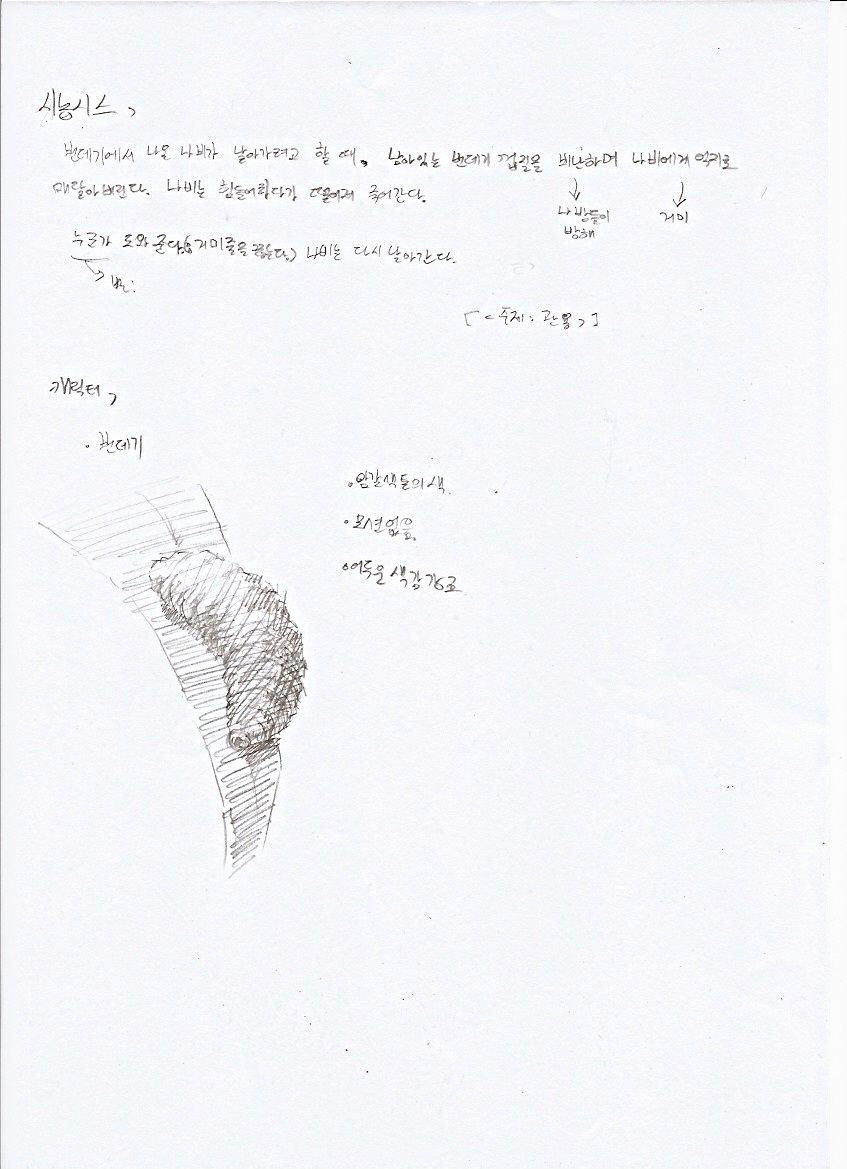 시놉시스,
번데기에서 나온 나비가 날아가려고 할 때, 남아있는 번데기 껍질을 비난하며 나비에게 억지로
매달아버린다. 나비는 힘들어하다가 떨어져 죽어간다.
나방들이
방해
거미
누군가 도와준다(거미줄을 끊는다.) 나비는 다시 날아간다.
[<주제: 관용>]
캐릭터,
• 번데기
• 암갈색톤의 색.
• 모션없음.
• 어두운 색감 강조